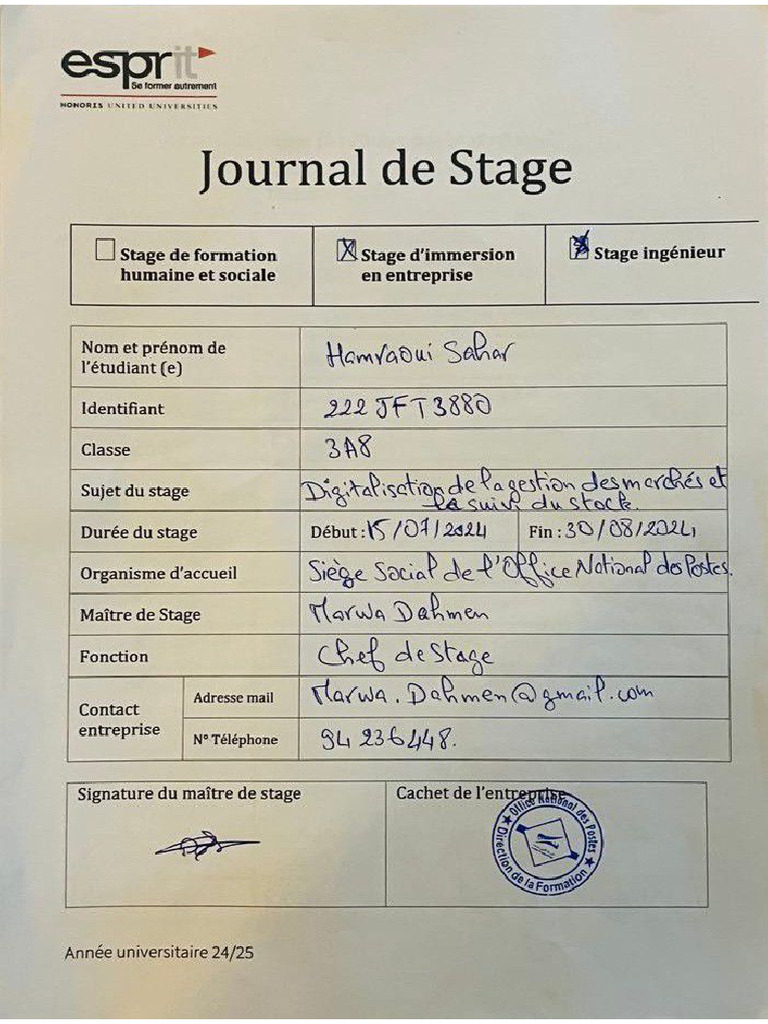 esprit
Se former autrement
HONORIS UNITED UNIVERSITIES
Journal de Stage
Stage de formation
humaine et sociale
Stage d'immersion
en entreprise
Stage ingénieur
Nom et prénom de
l'étudiant (e)
Hamraoui Sahar
Identifiant
222 JFT 3880
Classe
3A8
Sujet du stage
Digitalisation de la gestion des marchés et
la suivi du stock.
Durée du stage
Début : 15/07/2024
Fin : 30/08/2024
Organisme d'accueil
Siège Social de l'Office National des Postes.
Maître de Stage
Marwa Dahmen
Fonction
Chef de Stage
Contact
entreprise
Adresse mail
Marwa.Dahmen@gmail.com
N° Téléphone
94 236448.
Signature du maître de stage
Cachet de l'entreprise
Office National des Postes
Direction de la Formation
Année universitaire 24/25